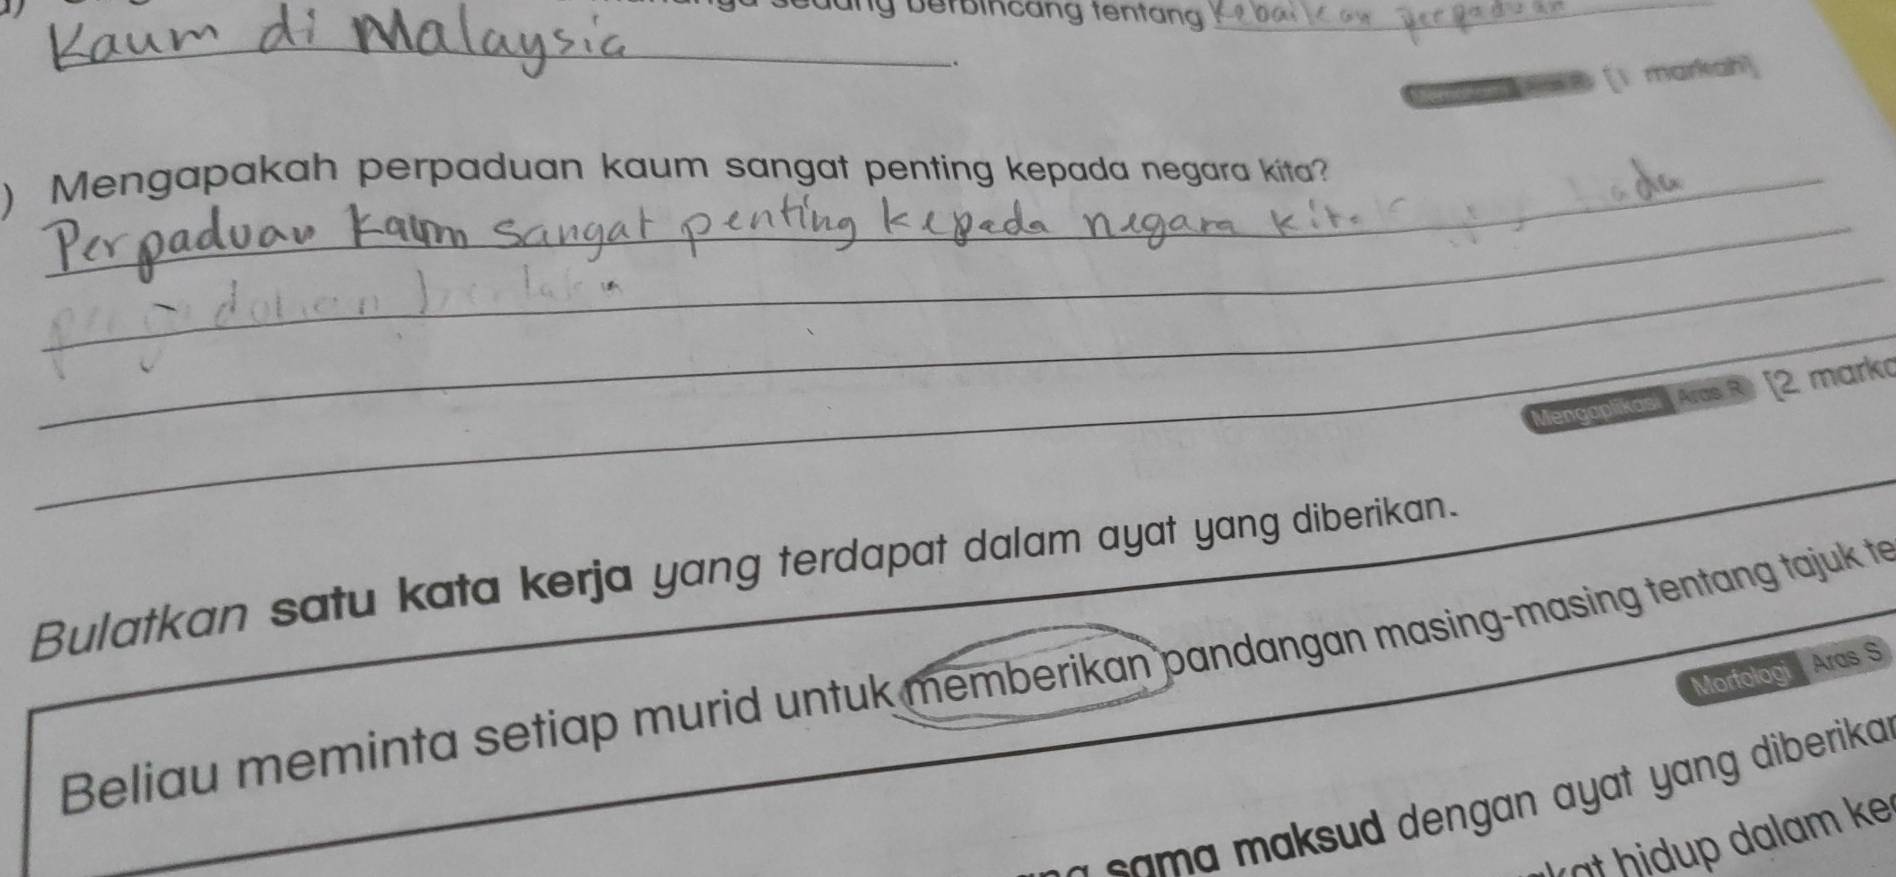 berbincang tentang kebaikan perpaduan
Kaum di Malaysia.
[1 markah]
) Mengapakah perpaduan kaum sangat penting kepada negara kita?
Perpaduan kaum sangat penting kepada negara kita
Mengaplikasi Aras R [2 marka
Bulatkan satu kata kerja yang terdapat dalam ayat yang diberikan.
Beliau meminta setiap murid untuk memberikan pandangan masing-masing tentang tajuk te
Morfologi Aras S
sama maksud dengan ayat yang diberikan
hidup dalam ke